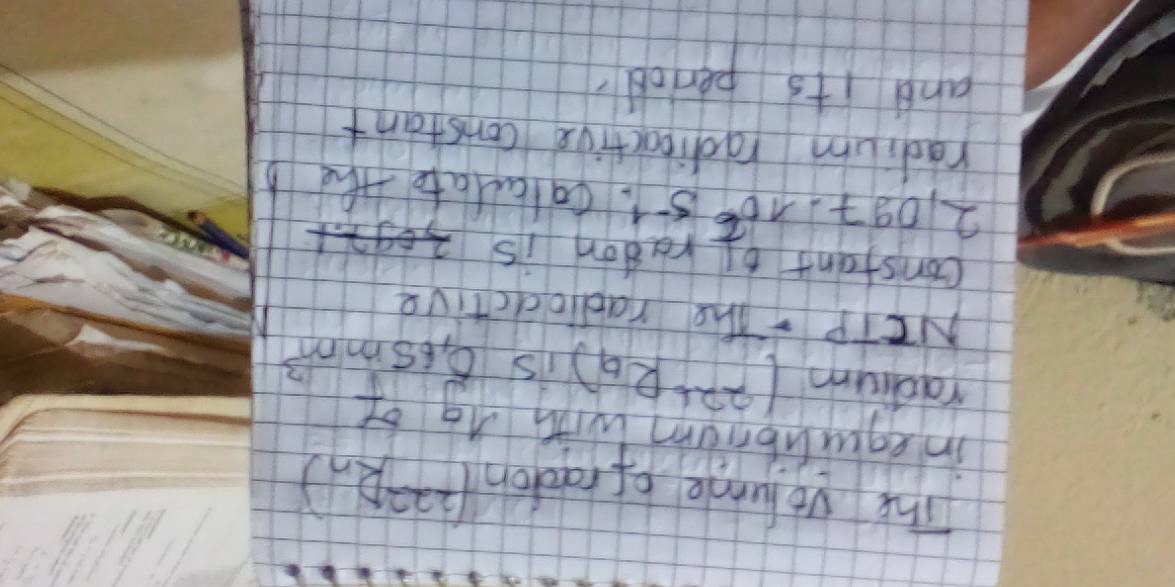 The volume of radon (222Rn)
in equilibrium with 1g of
radium (226Ra) is 0,65mm³
NCTP. The radioactive
constant of radon is 2,097.1
2,097.10⁻⁶ s⁻¹. Calculate the
radium radioactive constant
and its period.